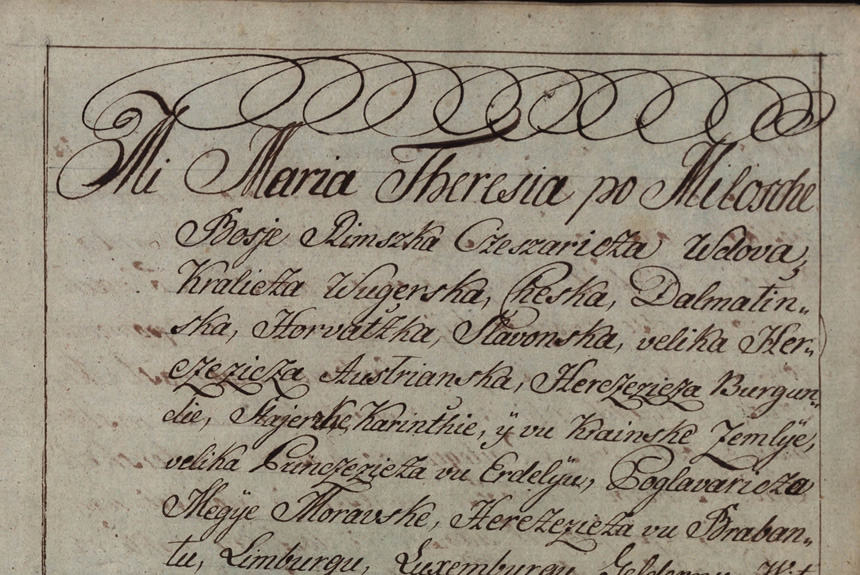 Mi Maria Theresia po Milosche
Bosje Rimszka Czeszaricza Wdova,
Kralicza Wugerska, Cheska, Dalmatin„
ska, Horvatzka, Slavonska, velika Her„
czezicza Austrianska, Herczezicza Burgun„
die, Stajerske, Karinthie, ÿ vu Krainske Zemlÿe,
velika Princzezicza vu Erdelÿu, Poglavaricza
Megÿe Moravske, Herczezicza vu Braban„
tu, Limburgu, Luxemburgu,